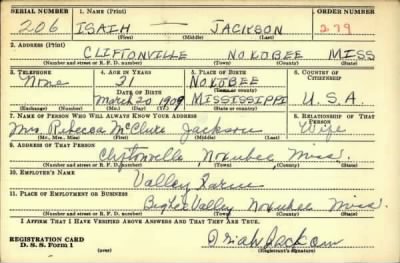 SERIAL NUMBER 1. NAME (Print) ORDER NUMBER
206 ISAIH — JACKSON 279
(First) (Middle) (Last)
2. ADDRESS (Print)
CLIFTONVILLE NOXUBEE MISS
(Number and street or R. F. D. number) (Town) (County) (State)
3. TELEPHONE 4. AGE IN YEARS 5. PLACE OF BIRTH 6. COUNTRY OF CITIZENSHIP
None 31 NOXUBEE
DATE OF BIRTH (Town or county)
March 20 1909 MISSISSIPPI U.S.A.
(Exchange) (Number) (Mo.) (Day) (Yr.) (State or country)
7. NAME OF PERSON WHO WILL ALWAYS KNOW YOUR ADDRESS 8. RELATIONSHIP OF THAT PERSON
Mrs. Rebecca McClure Jackson Wife
(Mr., Mrs., Miss) (First) (Middle) (Last)
9. ADDRESS OF THAT PERSON
Cliftonville Noxubee Miss.
(Number and street or R. F. D. number) (Town) (County) (State)
10. EMPLOYER'S NAME
Valley Farm
11. PLACE OF EMPLOYMENT OR BUSINESS
Valley Noxubee Miss.
(Number and street or R. F. D. number) (Town) (County) (State)
I AFFIRM THAT I HAVE VERIFIED ABOVE ANSWERS AND THAT THEY ARE TRUE.
REGISTRATION CARD
D. S. S. Form 1 Jackson
(Registrant's signature)